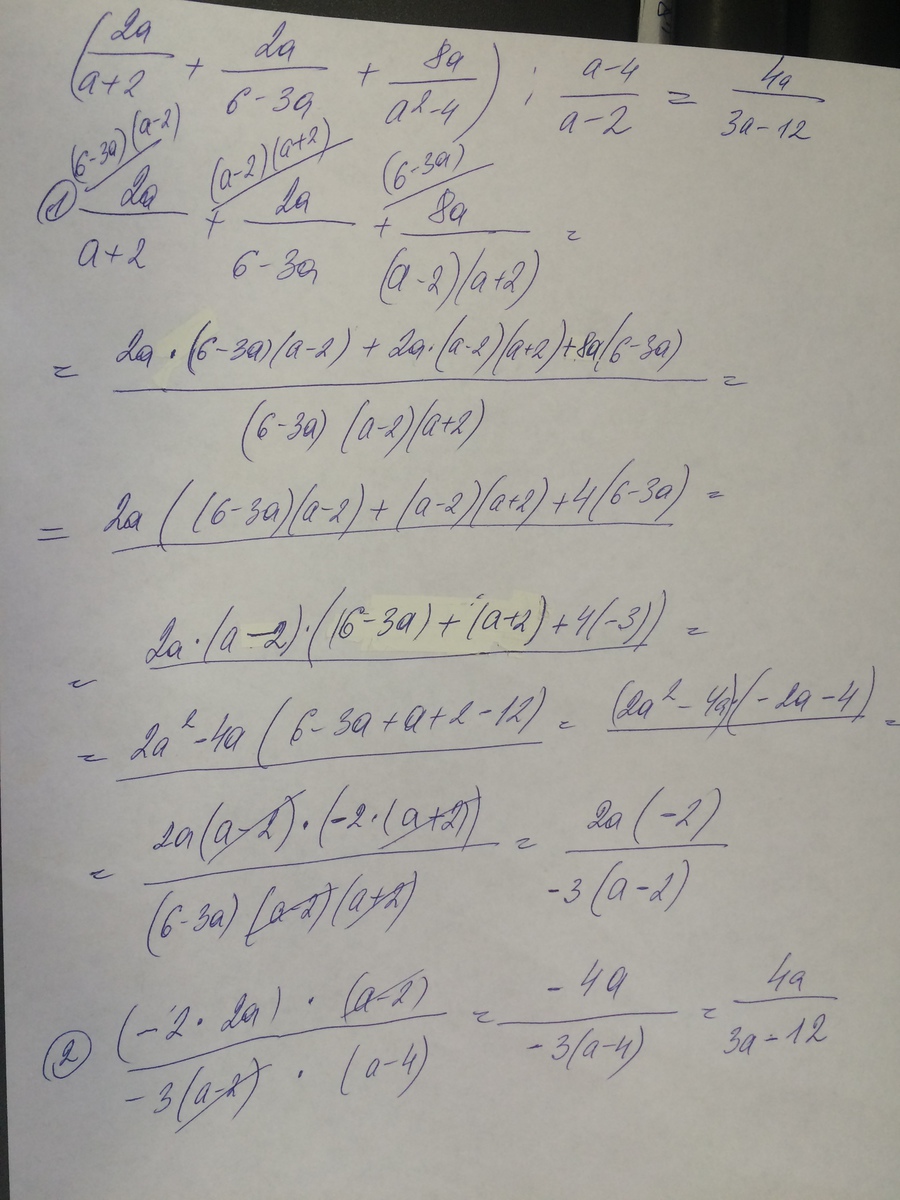 (2a/(a+2) + 2a/(6-3a) + 8a/(a²-4)) : (a-4)/(a-2) = 4a/(3a-12)
(6-3a)(a-2) (a-2)(a+2) (6-3a)
① 2a/(a+2) + 2a/(6-3a) + 8a/((a-2)(a+2)) =
= (2a·(6-3a)(a-2) + 2a·(a-2)(a+2) + 8a(6-3a))/((6-3a)(a-2)(a+2)) =
= 2a((6-3a)(a-2) + (a-2)(a+2) + 4(6-3a) =
= 2a·(a-2)·((6-3a) + (a+2) + 4(-3)) =
= 2a²-4a(6-3a+a+2-12) = (2a²-4a)·(-2a-4) =
= 2a(a-2)·(-2·(a+2))/((6-3a)(a-2)(a+2)) = 2a(-2)/(-3(a-2))
② (-2·2a)·(a-2)/(-3(a-2)·(a-4)) = -4a/(-3(a-4)) = 4a/(3a-12)